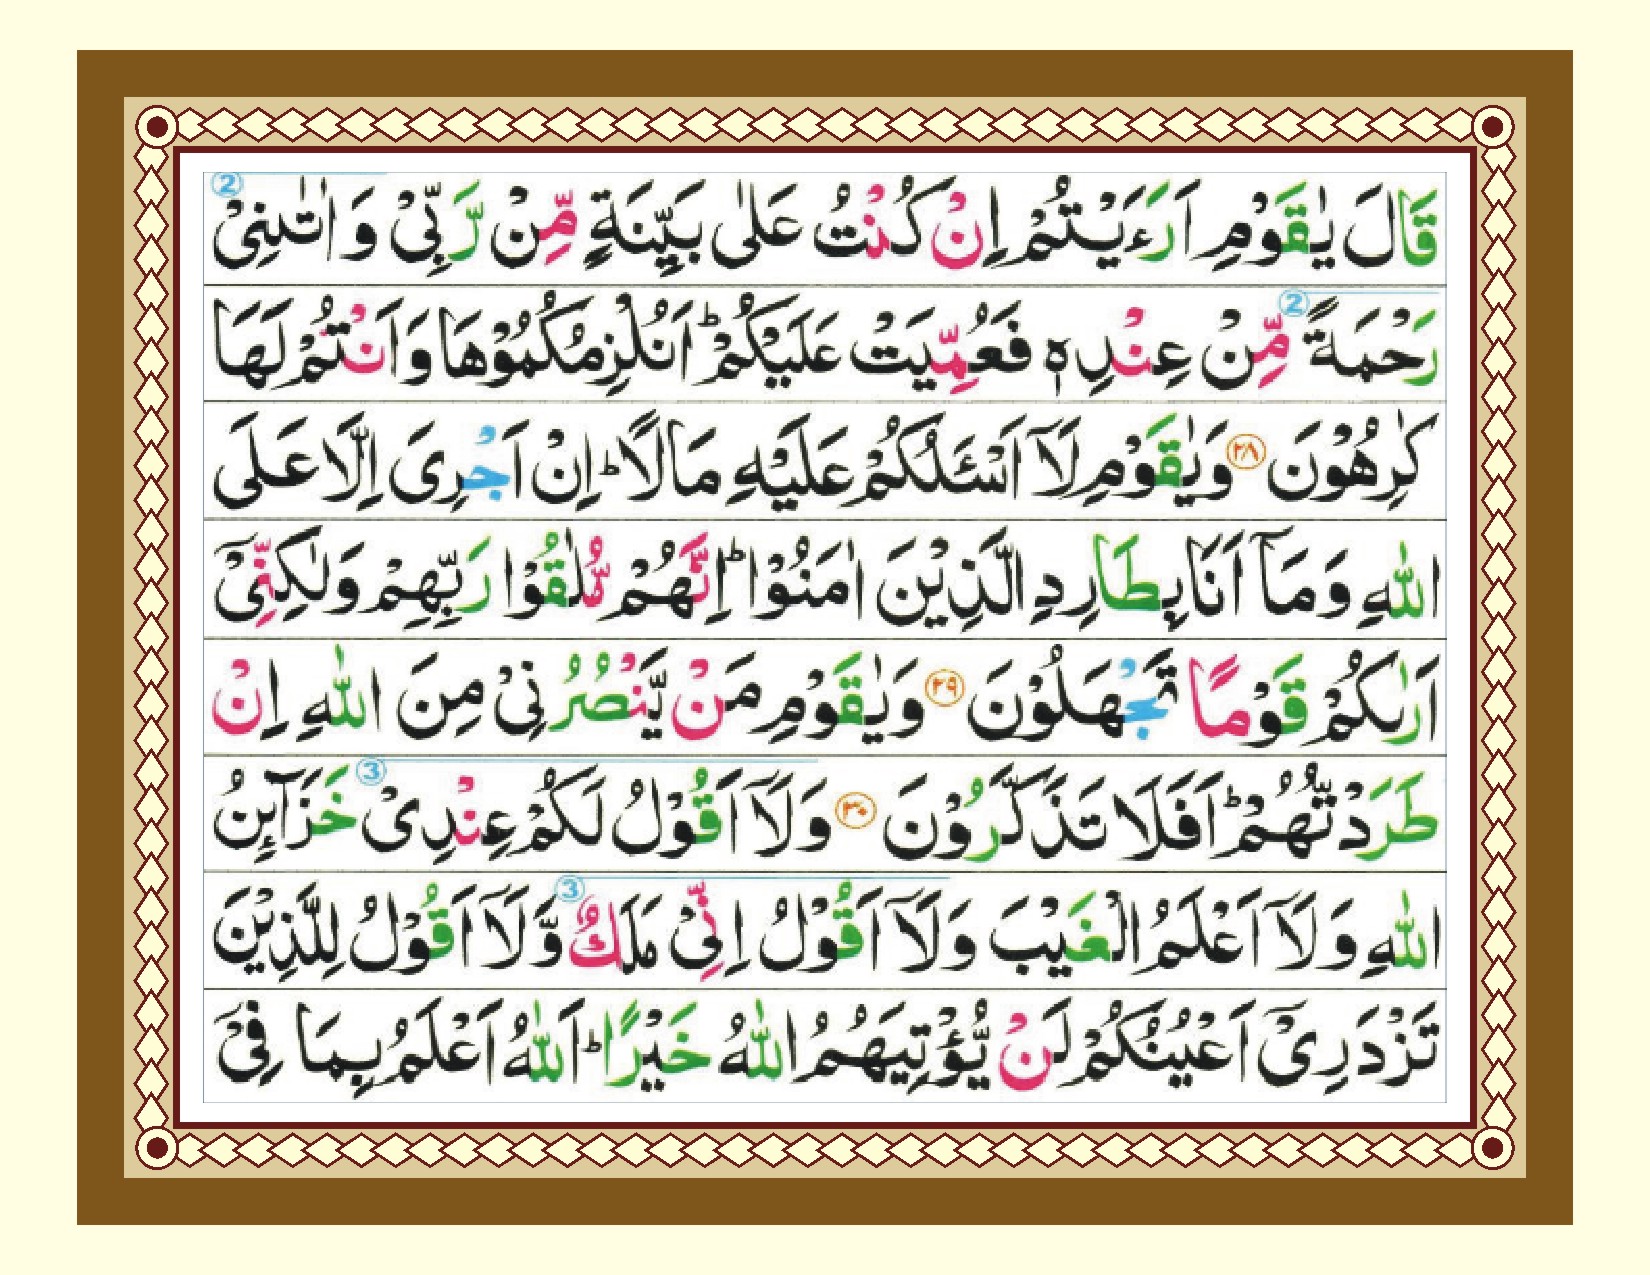 قَالَ يٰقَوْمِ اَرَءَيْتُمْ اِنْ كُنْتُ عَلٰى بَيِّنَةٍ مِّنْ رَّبِّىْ وَ اٰتٰىنِىْ ②
رَحْمَةً ② مِّنْ عِنْدِهٖ فَعُمِّيَتْ عَلَيْكُمْ ؕ اَنُلْزِمُكُمُوْهَا وَاَنْتُمْ لَهَا
كٰرِهُوْنَ ۲۸ وَيٰقَوْمِ لَاۤ اَسْئَلُكُمْ عَلَيْهِ مَالًا ؕ اِنْ اَجْرِىَ اِلَّا عَلَى
اللّٰهِ وَمَاۤ اَنَا بِطَارِدِ الَّذِيْنَ اٰمَنُوْا ؕ اِنَّهُمْ مُّلٰقُوْا رَبِّهِمْ وَلٰكِنِّىْۤ
اَرٰىكُمْ قَوْمًا تَجْهَلُوْنَ ۲۹ وَيٰقَوْمِ مَنْ يَّنْصُرُنِىْ مِنَ اللّٰهِ اِنْ
طَرَدْتُّهُمْ ؕ اَفَلَا تَذَكَّرُوْنَ ۳۰ وَلَاۤ اَقُوْلُ لَكُمْ عِنْدِىْ ③ خَزَآئِنُ
اللّٰهِ وَلَاۤ اَعْلَمُ الْغَيْبَ وَلَاۤ اَقُوْلُ اِنِّىْ مَلَكٌ ③ وَّلَاۤ اَقُوْلُ لِلَّذِيْنَ
تَزْدَرِىْۤ اَعْيُنُكُمْ لَنْ يُّؤْتِيَهُمُ اللّٰهُ خَيْرًا ؕ اَللّٰهُ اَعْلَمُ بِمَا فِىْۤ